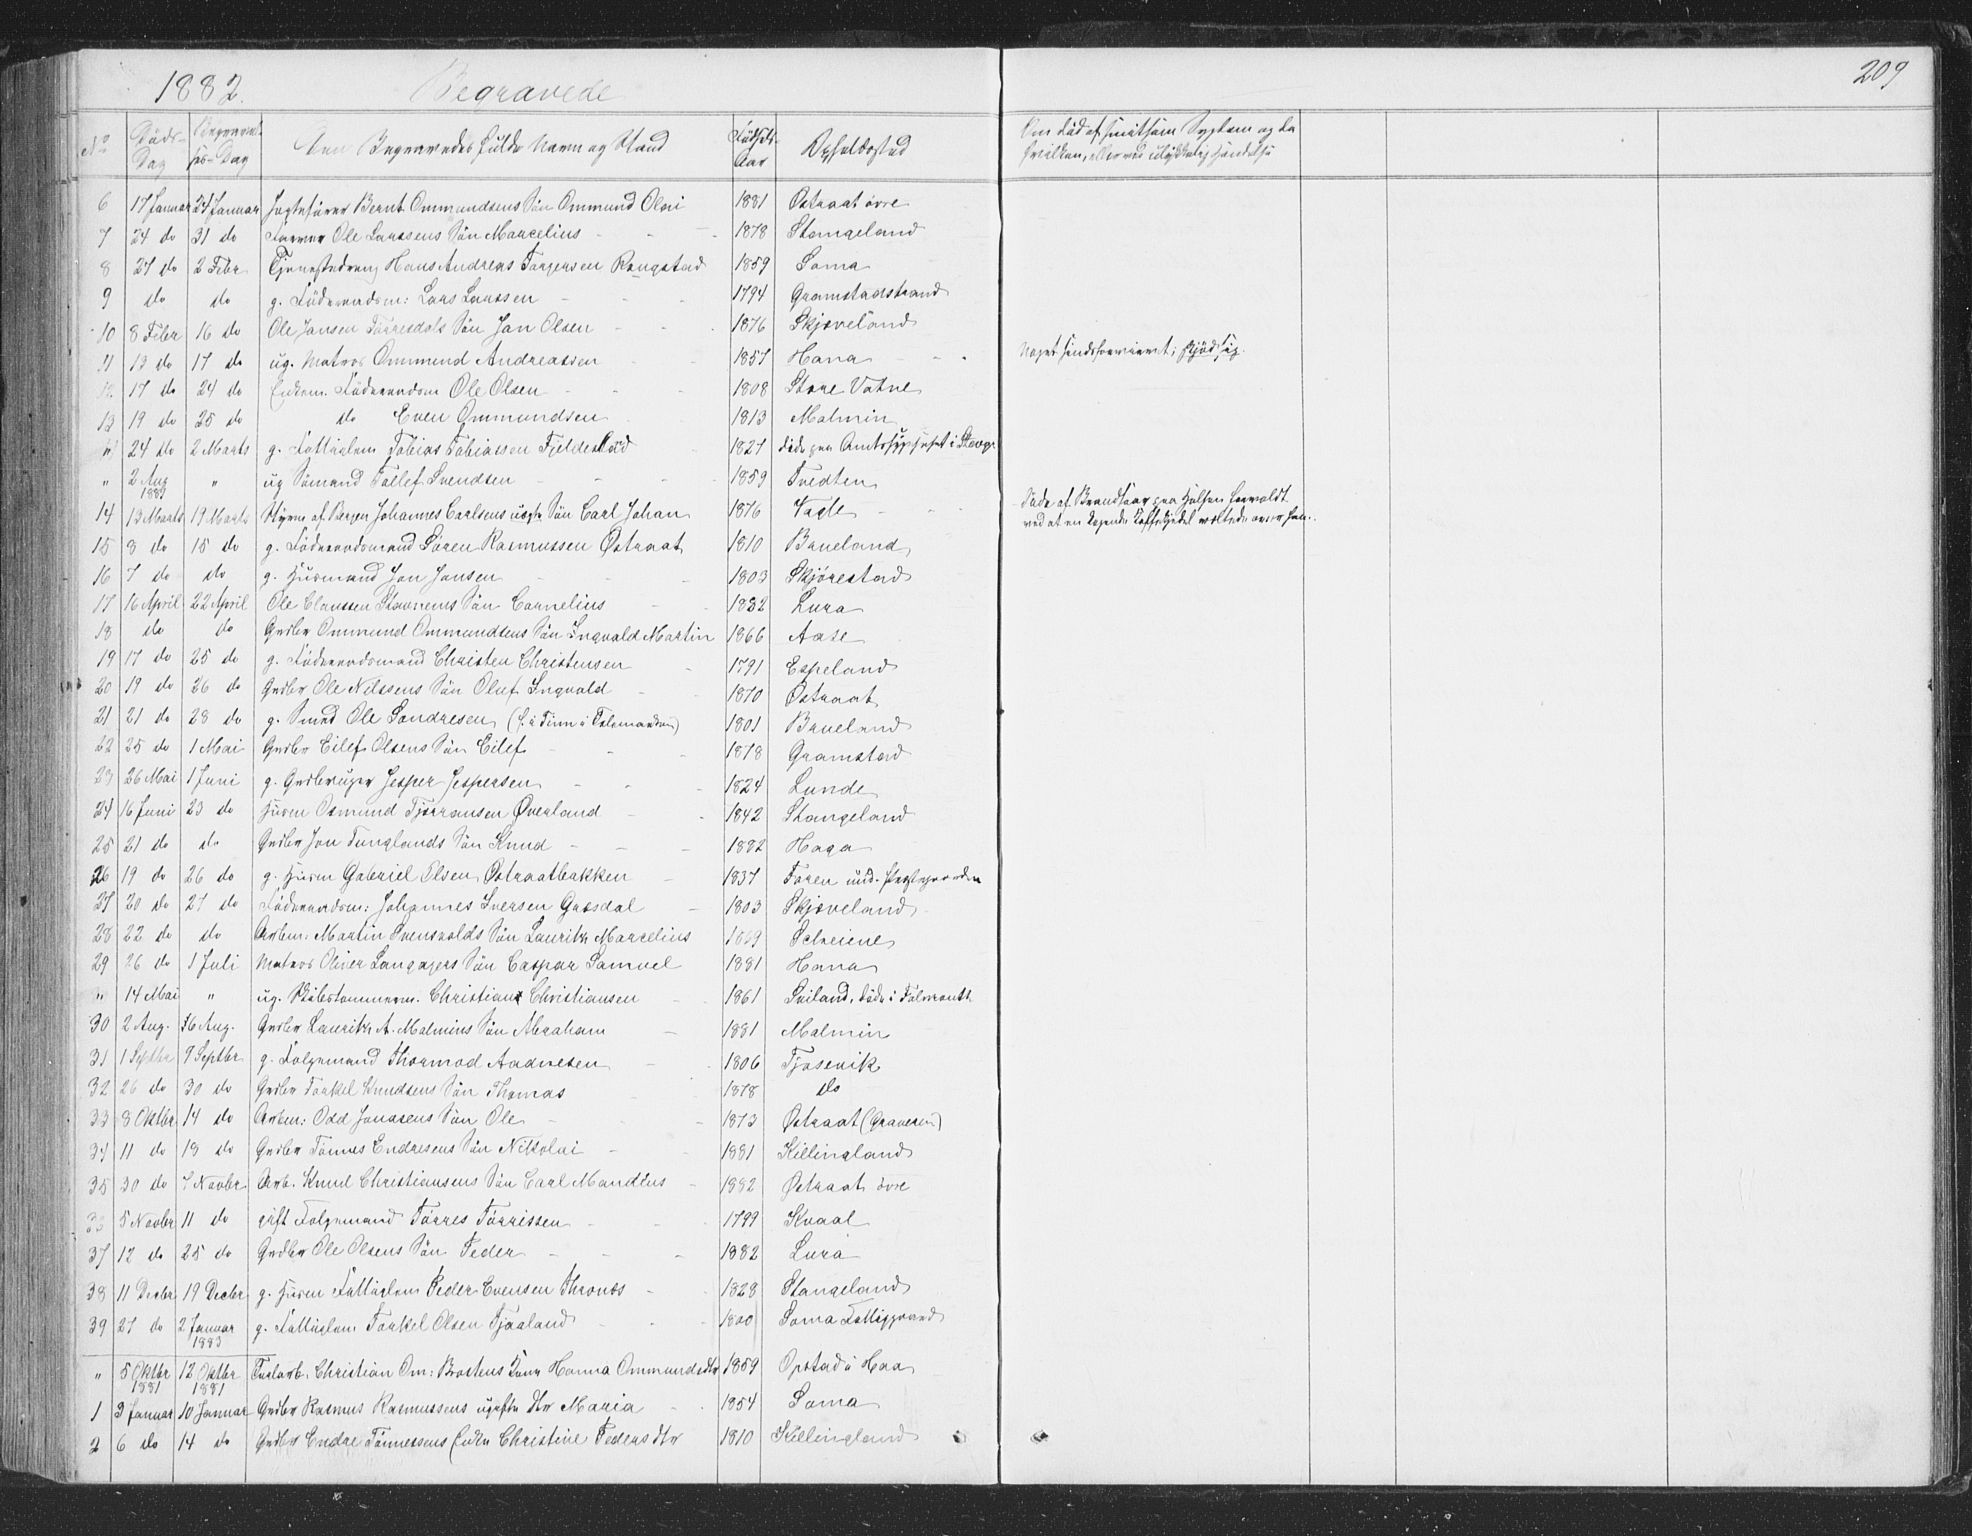 209
1882. Begravede
No Döds-Dag Begravelses-Dag Den Begravedes fulde Navn og Stand Fødsels-Aar Opholdssted Om död af smitsom Sygdom og da hvilken, eller ved ulykkelig Hændelse
6 17 Januar 24 Januar Jagtefører Bernt Ommundsens Sön Ommund Olai 1881 Østraat övre
7 24 do 31 do Ole Larssens Sön Marcelius 1878 Stangeland
8 27 do 2 Febr Tjenestedreng Hans Andreas Torgersen Ringstad 1859 Soma
9 do do g. Föderaadsm: Lars Larssen 1794 Gramstadstrand
10 8 Febr 16 do Ole Jansen Törresdals Sön Jan Olsen 1876 Skjæveland
11 13 do 17 do ug. Matros Ommund Andreassen 1857 Hana noget sindsforvirret;
12 17 do 24 do Enkem. Föderaadsm Ole Olsen 1808 Store Vatne
13 19 do 25 do do Even Ommundsen 1813 Malmin
" 24 do 2 Marts g. Fattiglem Tobias Tobiassen Fjeldestad 1827 döde paa Amtssygehuset i Stavgr
" 2 Aug 1881 " ug Sömand Tollef Svendsen 1859 Tvedten
14 13 Marts 19 Marts Johannes Carlsens uægte Sön Carl Johan 1876 Vagle Döde af Brandsaar paa Halsen forvoldt
ved at en kogende Kaffekjedel væltede over ham.
15 8 do 15 do g. Föderaadsmand Sören Rasmussen Østraat 1810 Brueland
16 7 do do g. Husmand Jon Jonsen 1803 Skjörestad
17 16 April 22 April Ole Claussen Stavnems Sön Cornelius 1882 Lura
18 do do Grdbr Ommund Ommundsens Sön Ingvald Martin 1866 Aase
19 17 do 25 do g. Föderaadsmand Christen Christensen 1791 Espeland
20 19 do 26 do Grdbr Ole Nilssens Sön Oluf Ingvald 1870 Østraat
21 21 do 28 do g. Smed Ole Sondresen (f. i Tinn i Telemarken) 1801 Brueland
22 25 do 1 Mai Grdbr Eilef Olsens Sön Eilef 1878 Gramstad
23 26 Mai 1 Juni g. Grdbruger Jesper Jespersen 1824 Lunde
24 16 Juni 23 do Husm Osmund Tjörransen Øverland 1842 Stangeland
25 21 do do Grdbr Jon Tunglands Sön Knud 1882 Haga
26 19 do 26 do g. Husm Gabriel Olsen Østraatbakken 1837 Foren und. Prestgaarden
27 20 do 27 do Föderaadsm: Johannes Iversen Græsdal 1803 Skjæveland
28 22 do do Arbm: Martin Svensvolds Sön Lauritz Marcelius 1869 Scheiene
29 26 do 1 Juli Matros Oliver Langagers Sön Caspar Samuel 1881 Hana
" 14 Mai " ug. Christian Christiansen 1861 Sviland, döde i Falmouth
30 2 Aug. 16 Aug. Grdbr Lauritz A. Malmins Sön Abraham 1881 Malmin
31 1 Septbr 9 Septbr g. Folgemand Thormod Aadnesen 1806 Tjosevik
32 26 do 30 do Grdbr Torkel Knudsens Sön Thomas 1878 do
33 8 Oktbr 14 do Arbm: Odd Jonasens Sön Ole 1873 Østraat (Graveren)
34 11 do 18 do Grdbr Tönnes Endresens Sön Nikolai 1881 Killingland
35 30 do 7 Novbr Arb. Knud Christiansens Sön Carl Mandius 1882 Østraat övre
36 5 Novbr 11 do gift Folgemand Törres Törrissen 1799 Kvaal
37 12 do 25 do Grdbr Ole Olsens Sön Peder 1882 Lura
38 11 Decbr 19 Decbr g. Husm Fattiglem Peder Evensen Thronæs 1828 Stangeland
39 27 do 2 Januar 1883 g. Fattiglem Torkel Olsen Tjaaland 1800 Soma Fattiggaard
" 5 Oktbr 1881 12 Oktbr 1881 Christian Om: Brostens Kone Hanna Ommundsdtr 1859 Opstad i Haa
1 3 Januar 10 Januar Grdbr Rasmus Rasmussens ugifte Dtr Maria 1854 Soma
2 6 do 14 do Grdbr Endre Tönnessens Enke Christine Pedersdtr 1810 Killingland